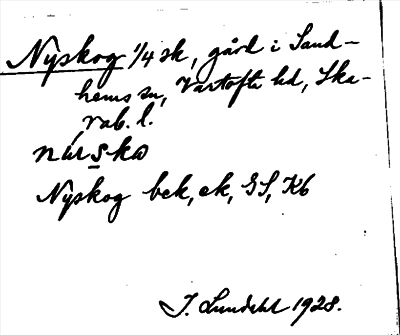 Nyskog 1/4 sk, gård i Sand-
hems sn, Vartofta hd, Ska-
rab. l.
Nyskog bek, ek, GS, Kb
J. Lundahl 1928.